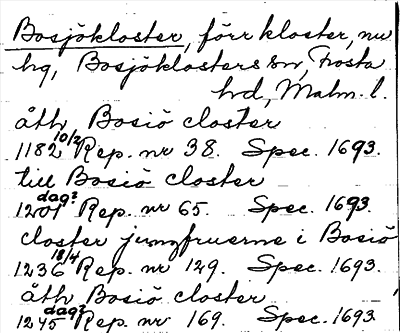 Bosjökloster, förr kloster, nu
hg, Bosjöklosters sn, Frosta
hd, Malm. l.
åth Bosiö closter
1182 10/2 Rep. nr 38. Spec. 1693.
till Bosiö closter
1201 dag? Rep. nr 65. Spec. 1693.
closter jungfruerne i Bosiö
1236 18/4 Rep. nr 129. Spec. 1693.
åth Bosiö closter
1245 dag? Rep. nr 169. Spec. 1693.